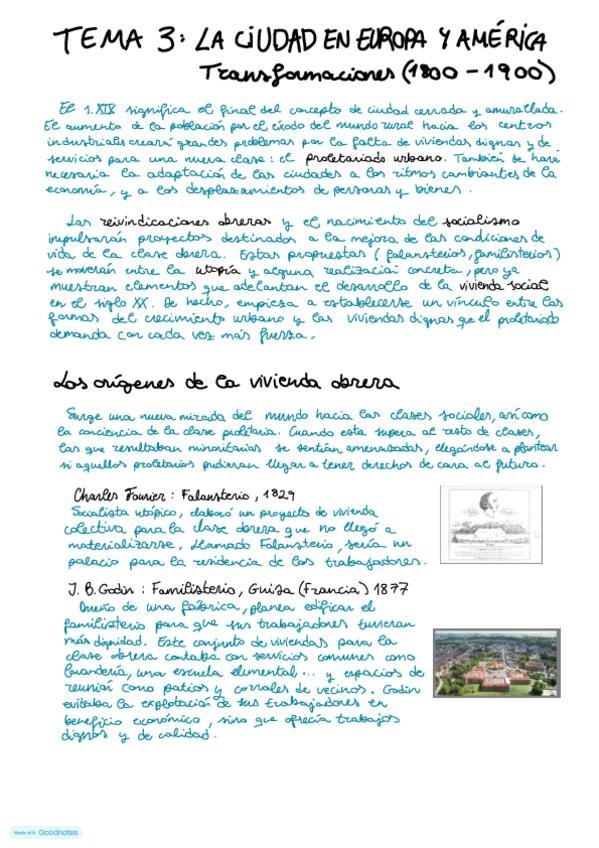 TEMA 3: LA CIUDAD EN EUROPA Y AMÉRICA
Transformaciones (1800 - 1900)
El s.XIX significa el final del concepto de ciudad cerrada y amurallada.
El aumento de la población por el éxodo del mundo rural hacia los centros
industriales creará grandes problemas por la falta de viviendas dignas y de
servicios para una nueva clase: el proletariado urbano. También se hará
necesaria la adaptación de las ciudades a los ritmos cambiantes de la
economía, y a los desplazamientos de personas y bienes.
Las reivindicaciones obreras y el nacimiento del socialismo
impulsarán proyectos destinados a la mejora de las condiciones de
vida de la clase obrera. Estas propuestas (falansterios, familisterios)
se moverán entre la utopía y alguna realización concreta, pero ya
muestran elementos que adelantan el desarrollo de la vivienda social
en el siglo XX. De hecho, empieza a establecerse un vínculo entre las
formas del crecimiento urbano y las viviendas dignas que el proletariado
demanda con cada vez más fuerza.
Los orígenes de la vivienda obrera
Surge una nueva mirada del mundo hacia las clases sociales, así como
la conciencia de la clase proletaria. Cuando esta supera al resto de clases,
las que resultaban minoritarias se sentían amenazadas, llegándose a plantear
si aquellos proletarios pudieran llegar a tener derechos de cara al futuro.
Charles Fourier: Falansterio, 1829
Socialista utópico, elaboró un proyecto de vivienda
colectiva para la clase obrera que no llegó a
materializarse. Llamado Falansterio, sería un
palacio para la residencia de los trabajadores.
J. B. Godin: Familisterio, Guisa (Francia) 1877
Dueño de una fábrica, planea edificar el
familisterio para que sus trabajadores tuvieran
más dignidad. Este conjunto de viviendas para la
clase obrera contaba con servicios comunes como
guardería, una escuela elemental... y espacios de
reunión como patios y corrales de vecinos. Godin
evitaba la explotación de sus trabajadores en
beneficio económico, sino que ofrecía trabajos
dignos y de calidad.
Made with Goodnotes